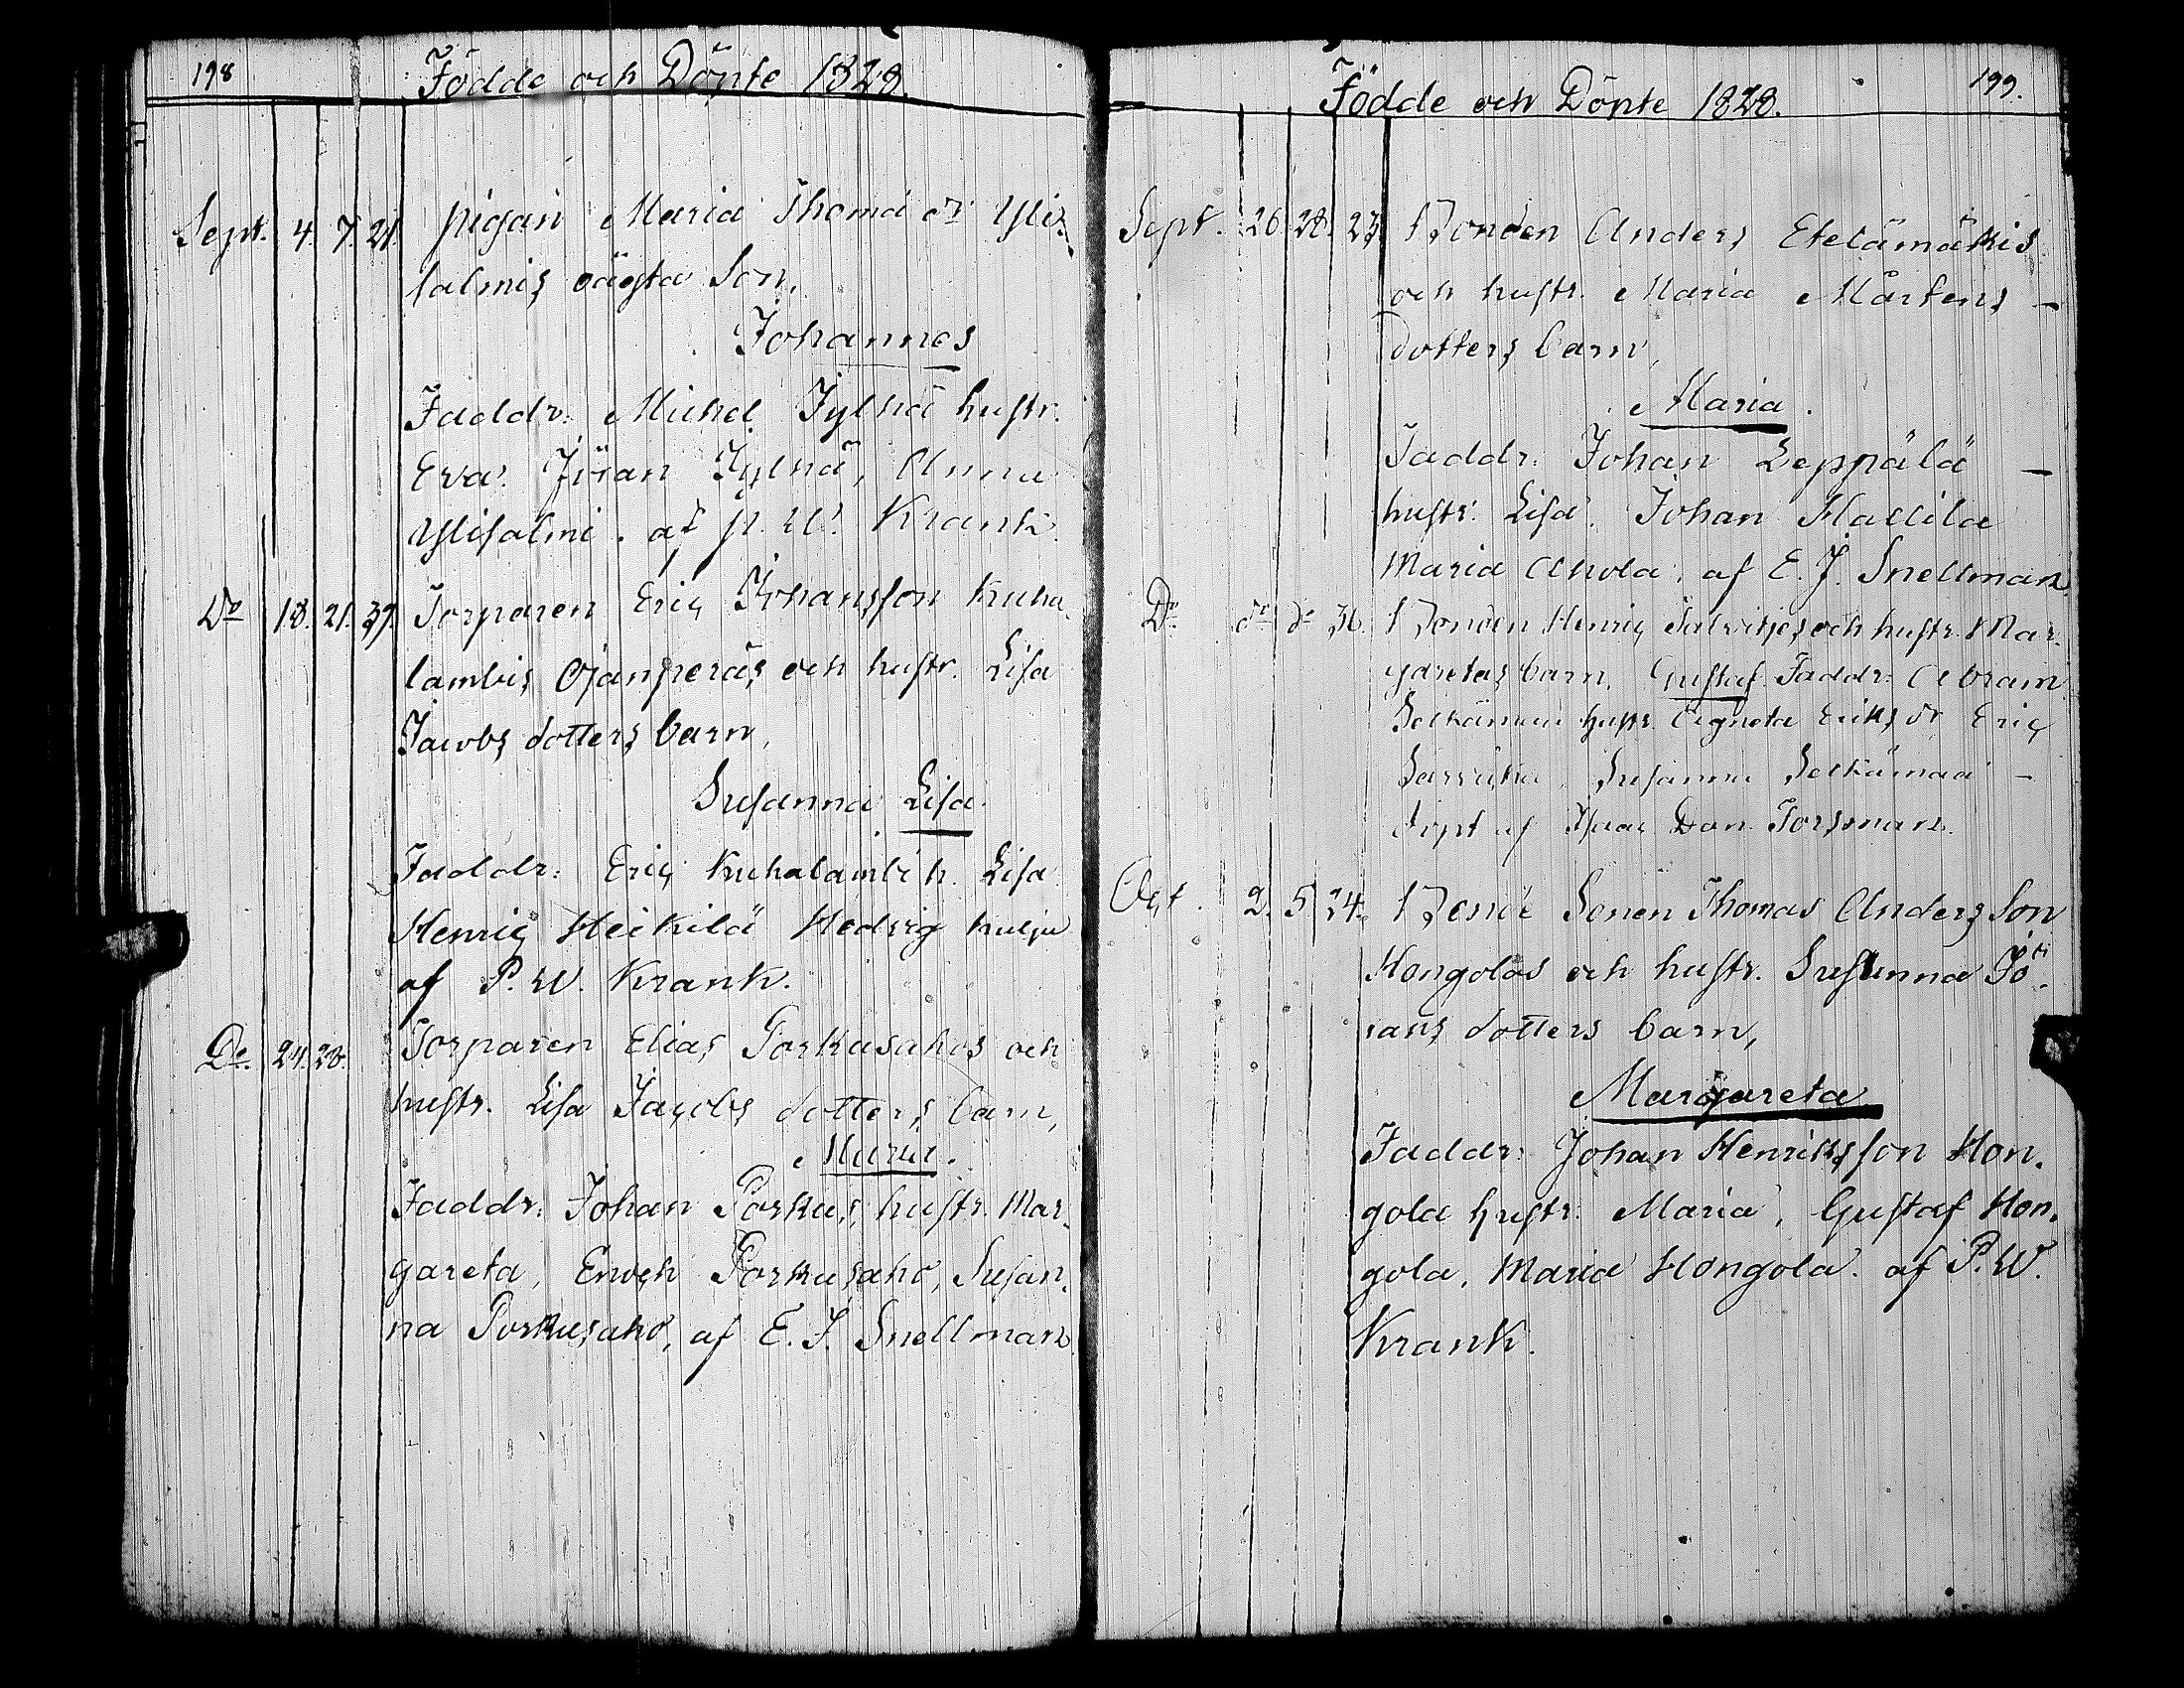 198
Födde och Döpte 1828.
Sept. 4. 7. 21. pigan Maria Thomä dr Yli-
salmis oägta Son,
Johannes
Faddr: Michel Jylhä hustr.
Eva. Jöran Jylhä, Anna
Ylisalmi. af P. W. Krank.
Do 18. 21. 37. Torparen Eric Johansson Kuha
lambis Ojanperäs och hustr. Lisa
Jacobs dotters barn,
Susanna Lisa.
Faddr: Eric Kuhalambi h. Lisa
Henric Heikilä Hedvig Kulju
af P. W. Krank.
Do. 24. 28. Torparen Elias Porkusahos och
hustr. Lisa Jacobs dotters barn,
Maria.
Faddr: Johan Porkus, hustr. Mar-
gareta, Enoch Porkusaho, Susan-
na Porkusaho, af E. J. Snellman
199.
Födde och Döpte 1828.
Sept. 26 28. 23 Bonden Anders Etelämäkis
och hustr. Maria Mårtens -
dotters barn,
Maria.
Faddr: Johan Leppälä -
hustr. Lisa. Johan Hallila
Maria Ahola, af E. J. Snellman
Do do do 36. Bonden Henric och hustr. Mar-
garetas barn, Gustaf. Faddr: Abram
hustr. Agneta Eriks dr Eric
Susanna Selkämaa -
döpt af Isaac Dan. Forsman.
Oct. 2. 5 24. Bonde Sonen Thomas Anders Son
Hongolas och hustr. Susanna Jö-
rans dotters barn,
Margareta
Faddr: Johan Henriksson Hon-
gola hustr. Maria, Gustaf Hon-
gola, Maria Hongola. af P. W.
Krank.